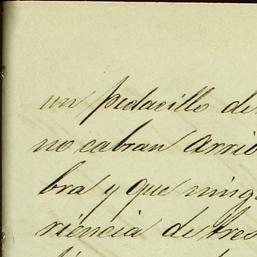 un pedacillo de
no cabran arrio
bra y que ning
riencia de tres